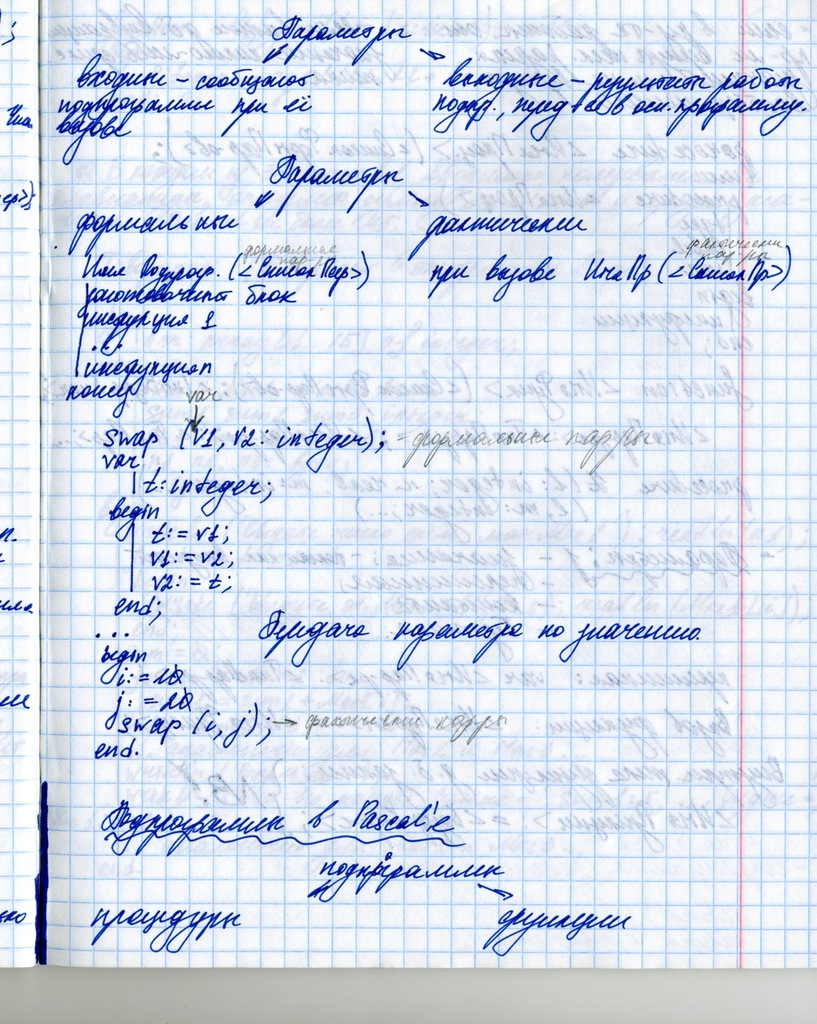 Параметры
входные – сообщают
подпрограмме при её
вызове
выходные – результаты работы
подпр., перед-ся в осн. программу.
Параметры
формальные
фактические
формальные
пар-ры
Имя Подпрогр. (<Список Пар>)
блок
инструкция 1
...
инструкция n
конец
фактически
пар-ры
при вызове Имя Пр (<Список Пр>)
var
swap (v1, v2: integer); - формальные пар-ры
var
t: integer;
begin
t:= v1;
v1:= v2;
v2:= t;
end;
...
Передача параметра по значению.
begin
i:= 10
j:= 20
swap (i, j); → фактически
end.
Подпрограммы в Pascal'е
подпрограммы
процедуры
функции